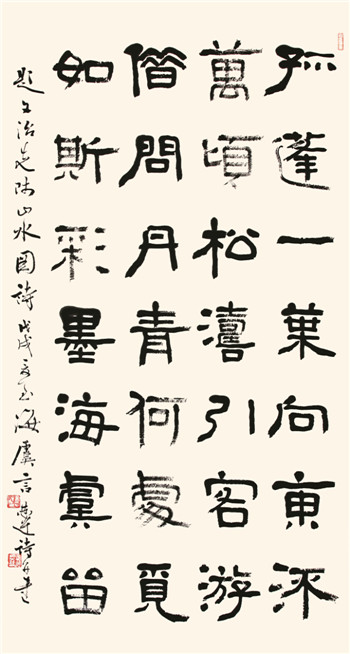 孤蓬一葉向東流
萬頃松濤引客游
借問丹青何處覓
如斯彩墨海虞留
題文治師山水圖詩 戊戌 海虞言恭達詩并書